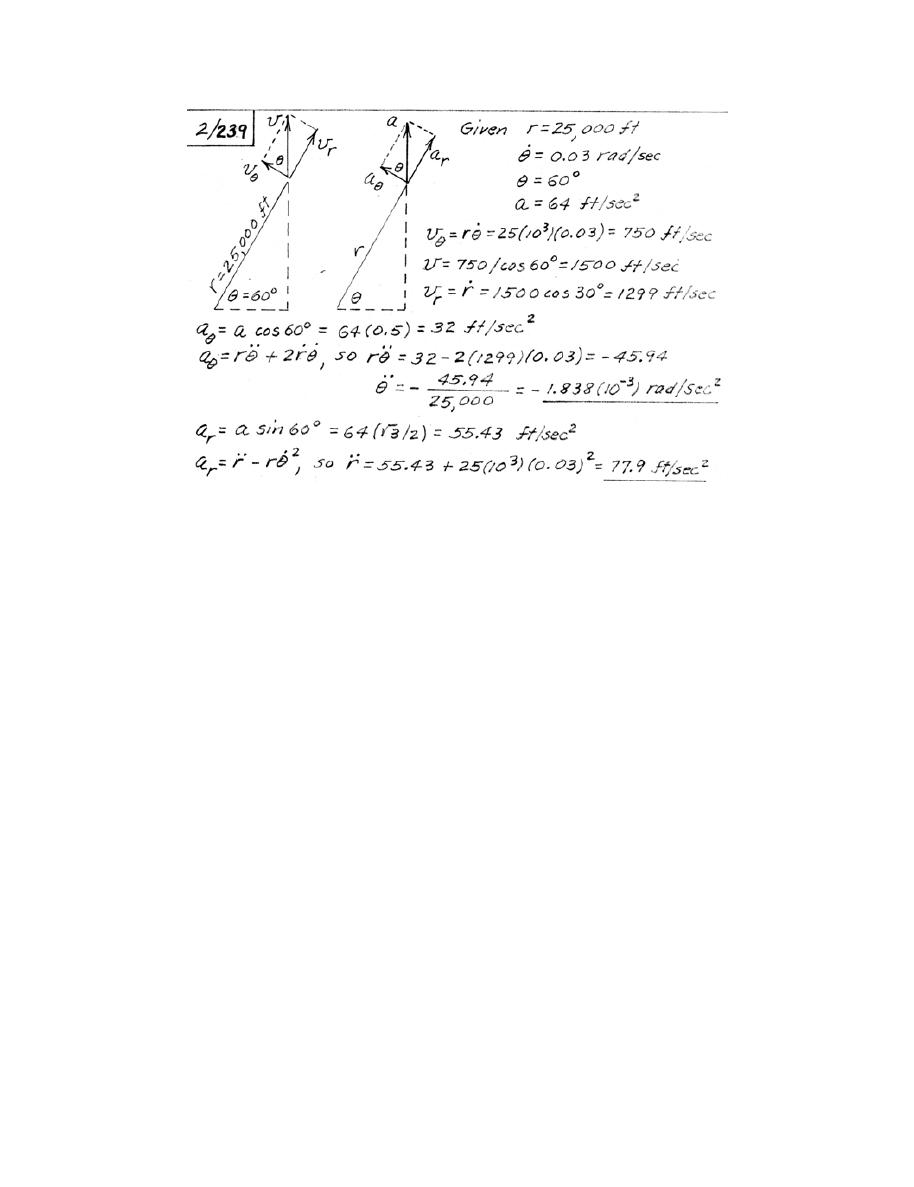 2/239
v
v_r
v_θ
θ
r = 25,000 ft
θ = 60°
a
a_r
a_θ
θ
r
θ
Given r = 25,000 ft
θ̇ = 0.03 rad/sec
θ = 60°
a = 64 ft/sec²
v_θ = rθ̇ = 25(10³)(0.03) = 750 ft/sec
v = 750/cos 60° = 1500 ft/sec
v_r = ṙ = 1500 cos 30° = 1299 ft/sec
a_θ = a cos 60° = 64(0.5) = 32 ft/sec²
a_θ = rθ̈ + 2ṙθ̇, so rθ̈ = 32 - 2(1299)(0.03) = -45.94
θ̈ = - 45.94 / 25,000 = - 1.838(10⁻³) rad/sec²
a_r = a sin 60° = 64(√3/2) = 55.43 ft/sec²
a_r = r̈ - rθ̇², so r̈ = 55.43 + 25(10³)(0.03)² = 77.9 ft/sec²